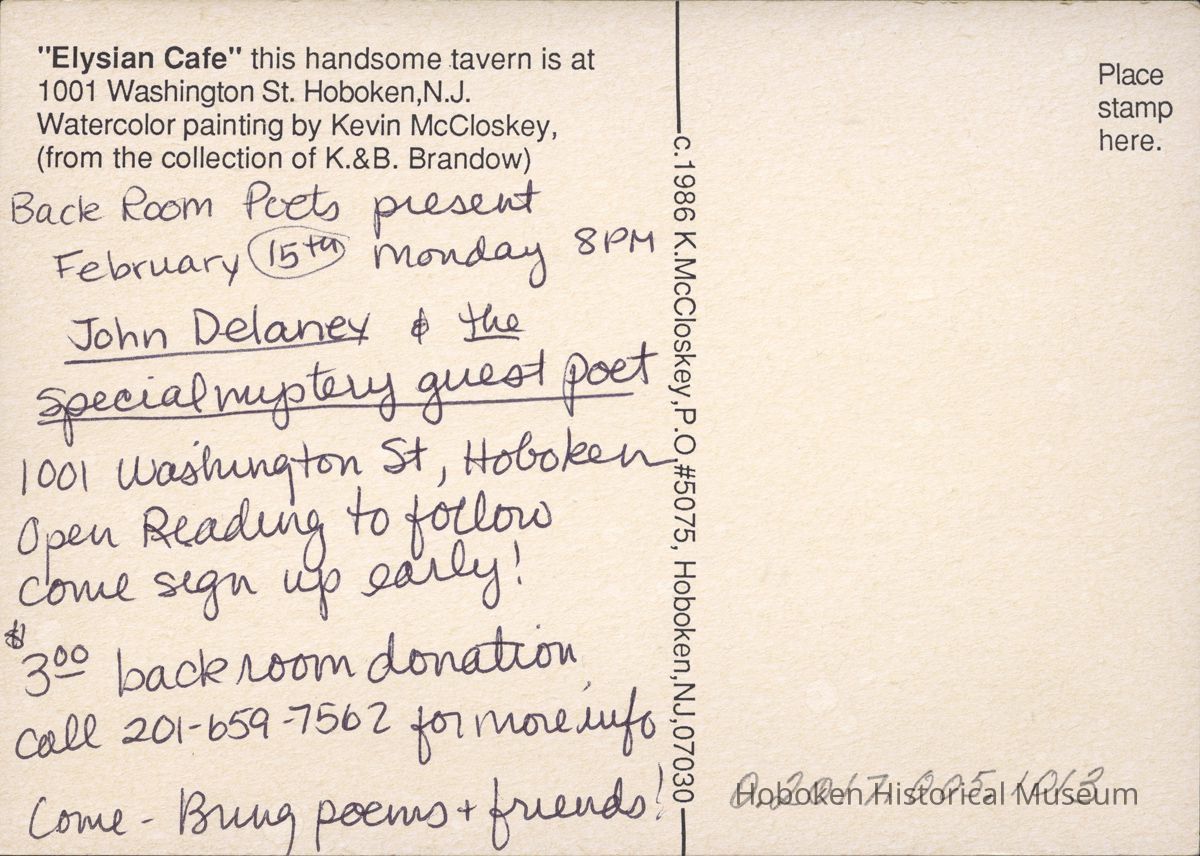 "Elysian Cafe" this handsome tavern is at
1001 Washington St. Hoboken,N.J.
Watercolor painting by Kevin McCloskey,
(from the collection of K.&B. Brandow)
Back Room Poets present
February 15th Monday 8PM
John Delaney & the
special mystery guest poet
1001 Washington St, Hoboken
Open Reading to follow
come sign up early!
$3.00 back room donation
call 201-659-7562 for more info
Come - Bring poems + friends!
c.1986 K.McCloskey,P.O.#5075, Hoboken,NJ,07030
Place
stamp
here.
Hoboken Historical Museum